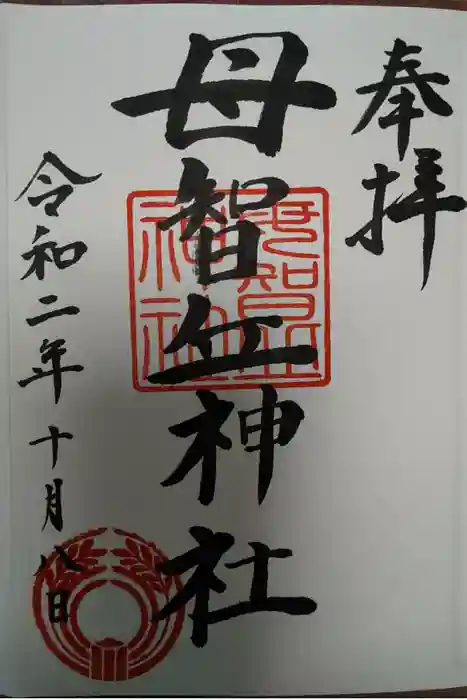 奉拝
母智丘神社
令和二年十月八日
母智丘
神社